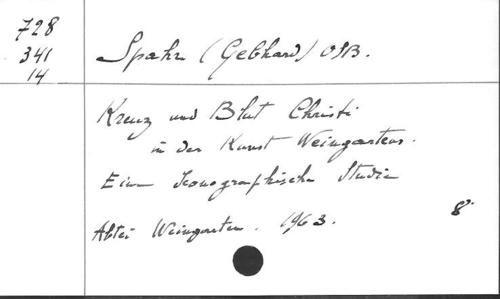 728
341
14
Spahr (Gebhard) OSB.
Kreuz und Blut Christi
in der Kunst Weingartens.
Eine Iconographische Studie
Abtei Weingarten. 1963.
8°